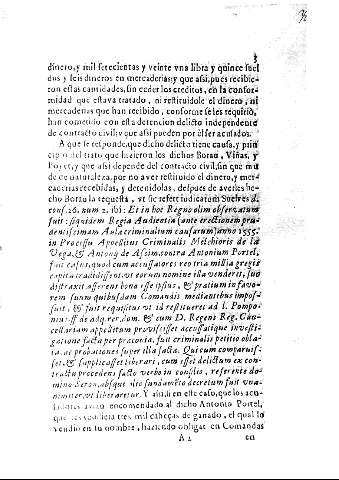 3
dinero, y mil setecientas y veinte vna libra y quince suel
dos y seis dineros en mercaderias; y que assi, pues recibie-
ron estas cantidades, sin ceder los creditos, en la confor-
midad que estava tratado, ni restituidole el dinero, ni
mercaderias que han recibido, conforme se les requirió,
han cometido con esta detencion delicto independente
de contracto civil, y que assi pueden por èl ser acusados.
A que se responde, que dicho delicto tiene causa, y prin
cipio del trato que hizieron los dichos Borau, Viñas, y
Poyet, y que assi depende del contracto civil, sin que mu
de de naturaleza, por no aver restituido el dinero, y mer-
caderias recebidas, y detenidolas, despues de averles he-
cho Borau la requesta, vt sic refert iudicatum Suelves d.
conf. 26. num. 2. ibi: Et in hoc Regno olim observatum
fuit: siquidem Regia Audientia (ante erectionem pru-
dentissimam Aula criminalium causarum) anno 1555.
in Processu Apoesitus Criminalis Melchioris de la
Vega, & Antonij de Assin, contra Antonium Portel,
fuit casus, quod cum accussatores reo tria millia gregis
capita tradidissent, vt eorum nomine illa venderet, suo
distraxit asserens bona esse ipsius, & pratium in favo-
rem suum quibusdam Comandis mediantibus impos-
suit, & fuit requisitus vt id restitueret ad l. Pompo-
nius ff. de adq. rer. dom. & cum D. Regens Reg. Can-
cellariam appellitum provisisset accussatique investi-
gatione facta per praconia, fuit criminalis petitio obla-
ta, ac probationes super illa facta. Qui cum comparuis-
set, & supplicasset liberari, cum esset delictum ex con-
tractu procedens facto verbo in consilio, referente do-
mino Seran, absque alio fundamẽto decretum fuit vna-
nimiter, vt liberaretur. Y assi, si en este caso, que los acu-
sadores avian encomendado al dicho Antonio Portel,
que les vendiesse tres mil cabeças de ganado, el qual lo
vendio en su nombre, haziendo obligar en Comandas
A 2 en